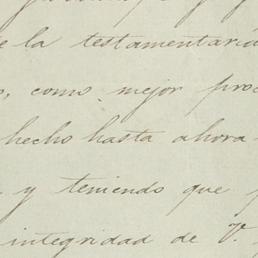 de la testamentaría
como mejor proc
hecho hasta ahora
y teniendo que
integridad de V.